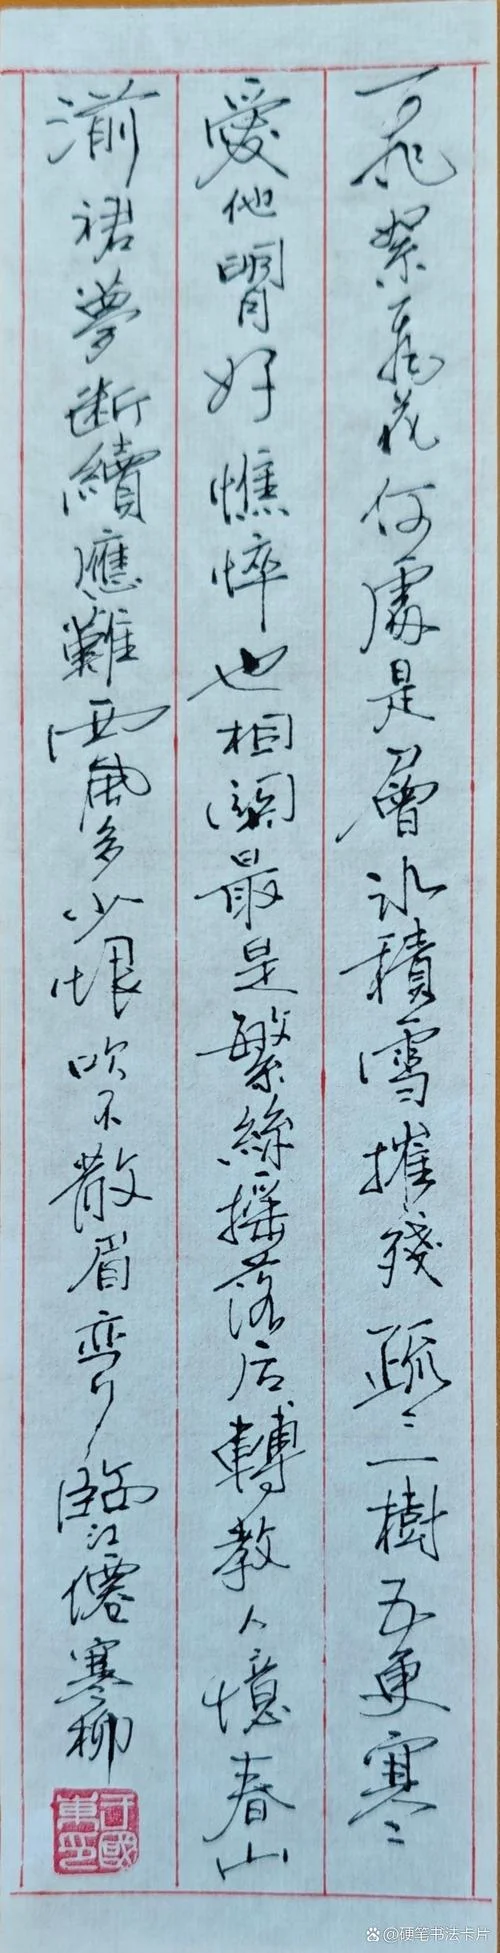 飛絮飛花何處是層冰積雪摧殘疏〻一樹五更寒
愛他明月好憔悴也相關最是繁絲搖落后轉教人憶春山
湔裙夢斷續應難西風多少恨吹不散眉弯臨江僊寒柳
硬笔书法卡片